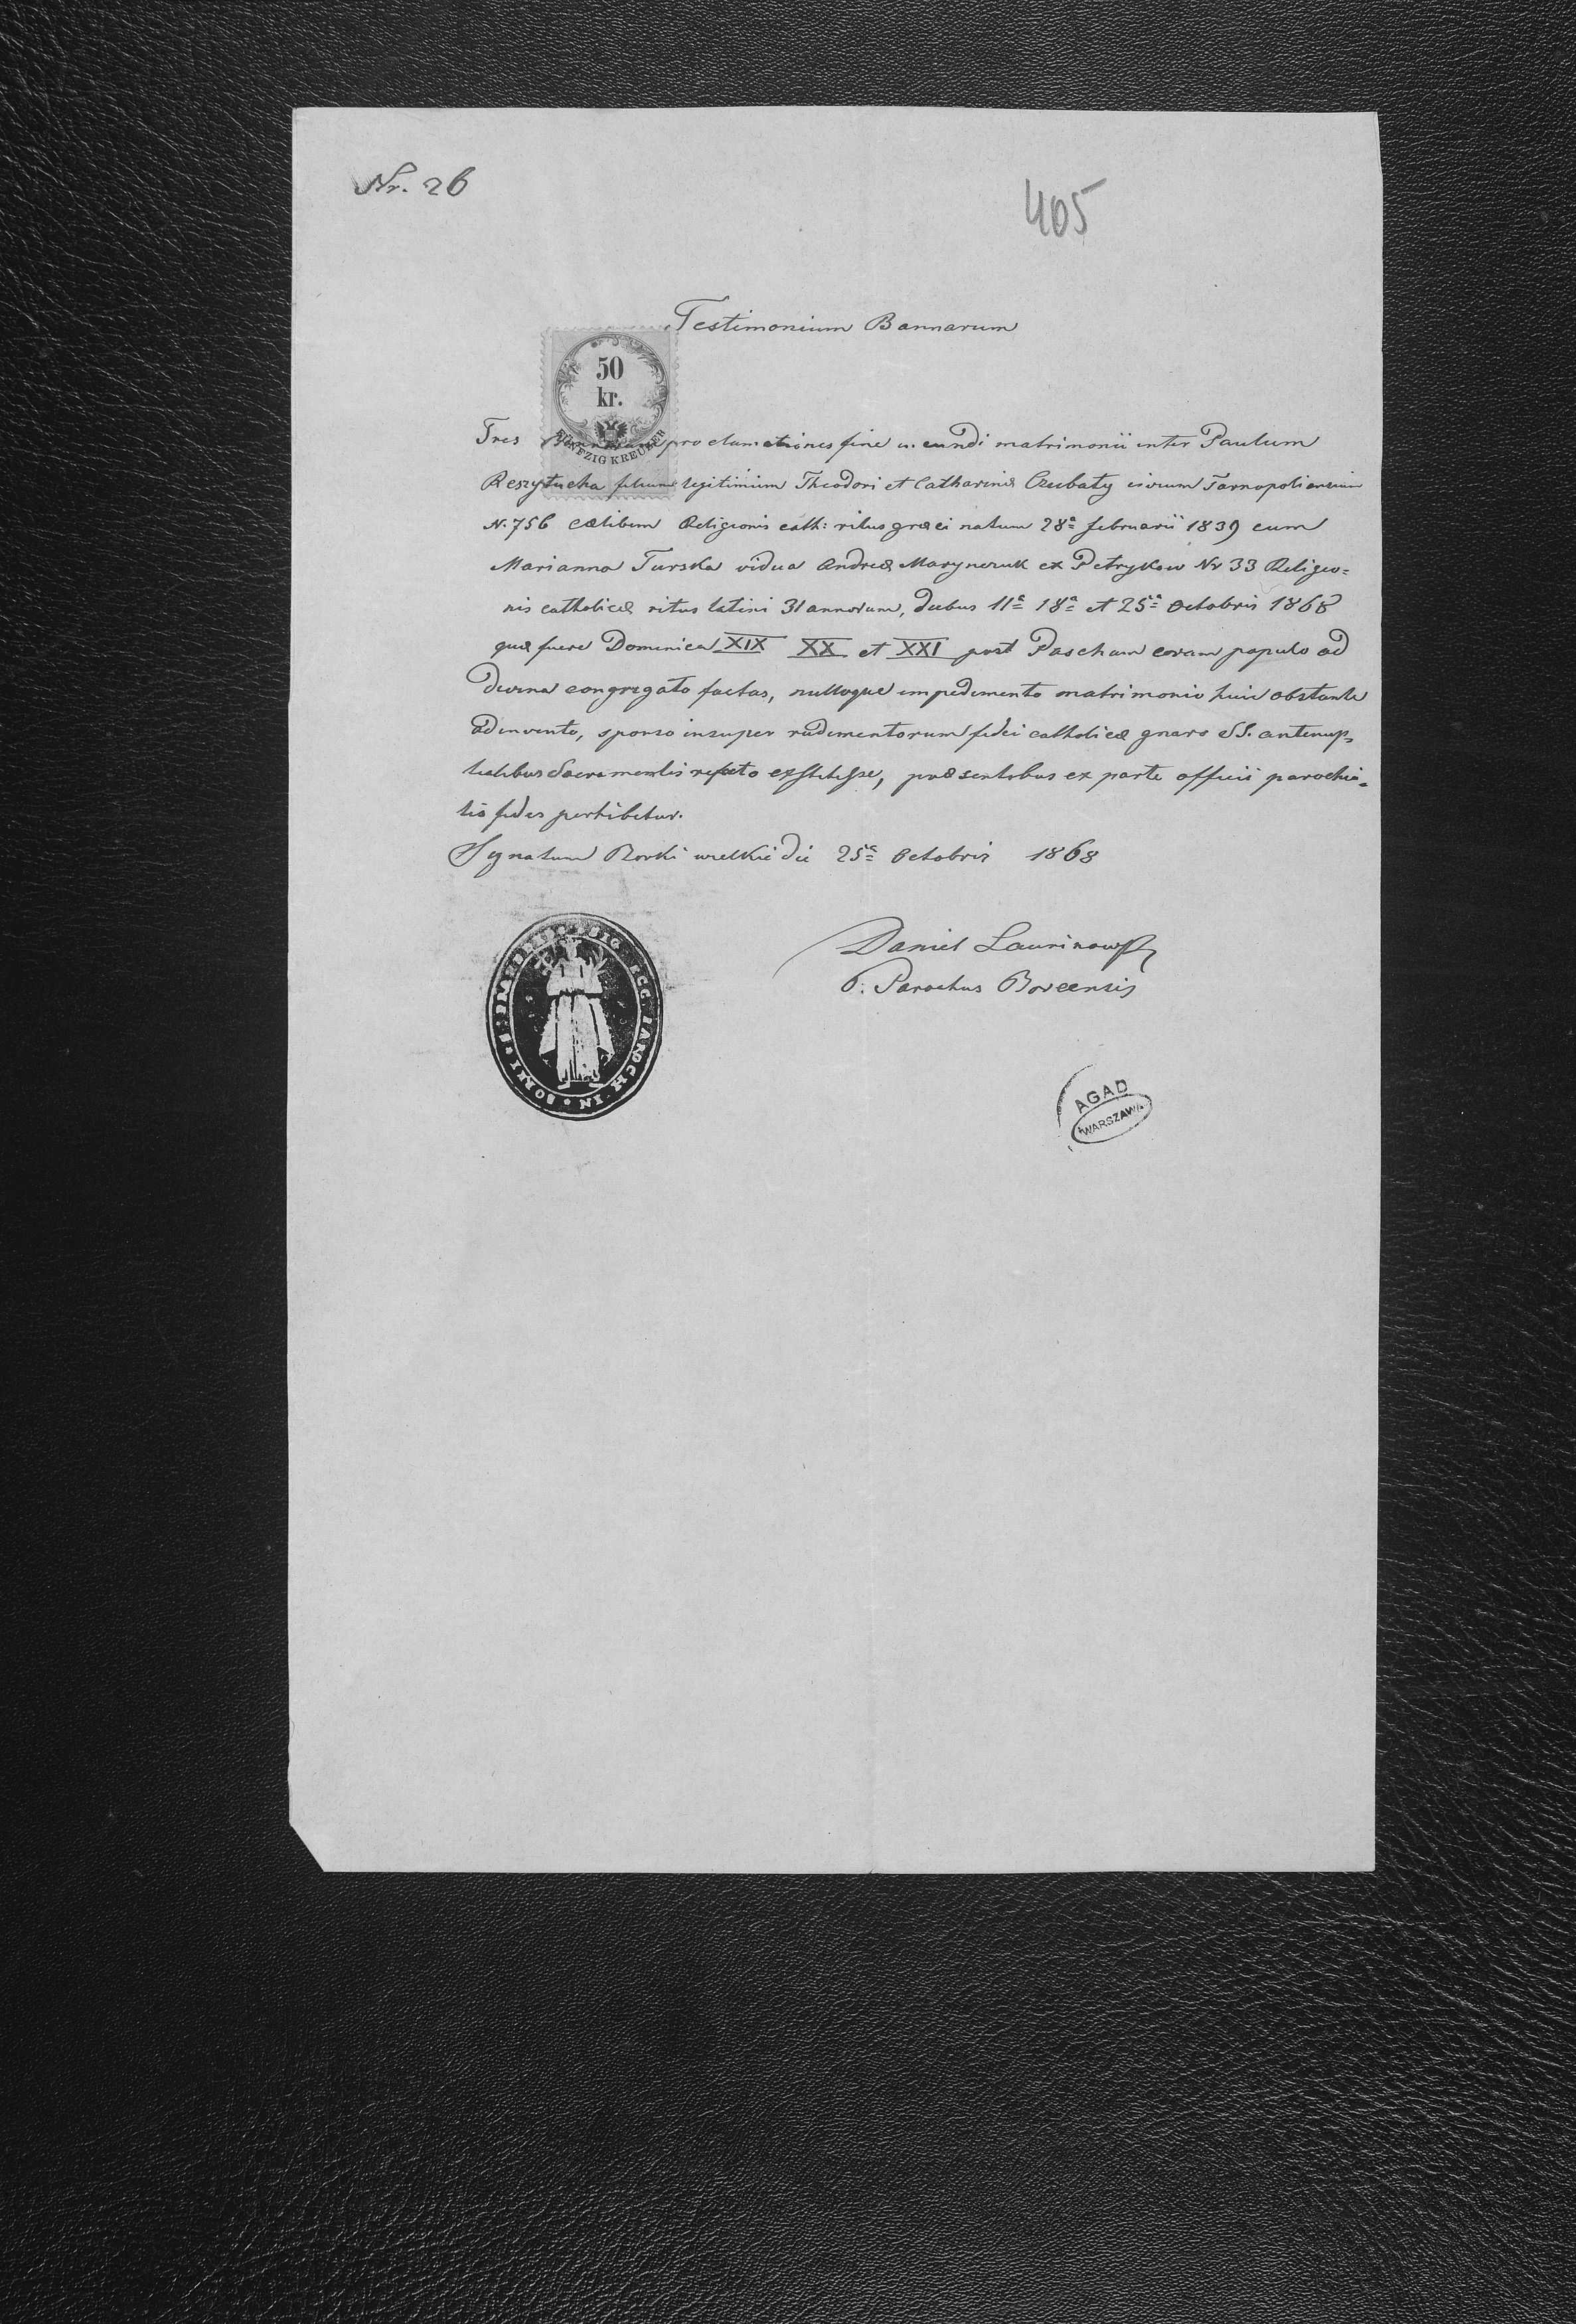 Nr. 26
405
Testimonium Bannarum
50
kr.
FÜNFZIG KREUZER
Tres proclamationes fine ineundi matrimonii inter Paulum
Reszytucha filium legitimum Theodori et Catharinæ Czubaty civium Tarnopoliensium
N. 756 cælibem Religionis cath: ritus græci natum 28ª februarii 1839 cum
Marianna Turska vidua Andreæ Maryneruk ex Petrykow Nr 33 Religio=
nis catholicæ ritus latini 31 annorum, diebus 11ª 18ª et 25ª Octobris 1868
quæ fuere Dominica XIX XX et XXI post Pascham coram populo ad
Divina congregato factas, nulloque impedimento matrimonio huic obstante
adinvento, sponso insuper rudimentorum fidei catholicæ gnaro SS. antenup=
tialibus Sacramentis refecto exstitisse, præsentibus ex parte officii parochia=
lis fides perhibetur.
Signatum Borki wielkie die 25ª Octobris 1868
Daniel Laurinowski
Parochus Borcensis
SIG ECC PAROCH IN BORKI
AGAD
WARSZAWA